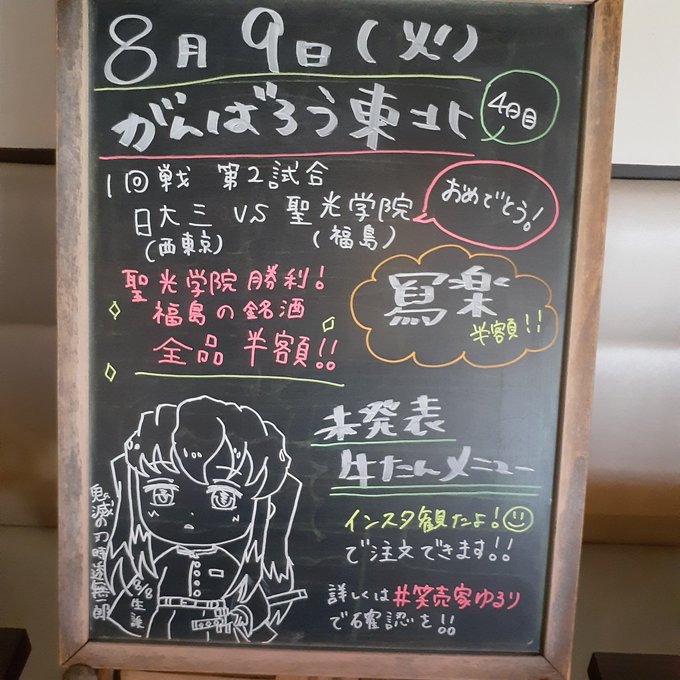 8月9日(火)
がんばろう東北
4日目
1回戦 第2試合
日大三 VS 聖光学院
(西東京) (福島)
おめでとう!
聖光学院勝利!
福島の銘酒
全品半額!!
寫楽
半額!!
未発表
牛たんメニュー
インスタ観たよ!
で注文できます!!
詳しくは#笑売家ゆるり
で確認を!!
鬼滅の刃 時透無一郎
8/8生誕